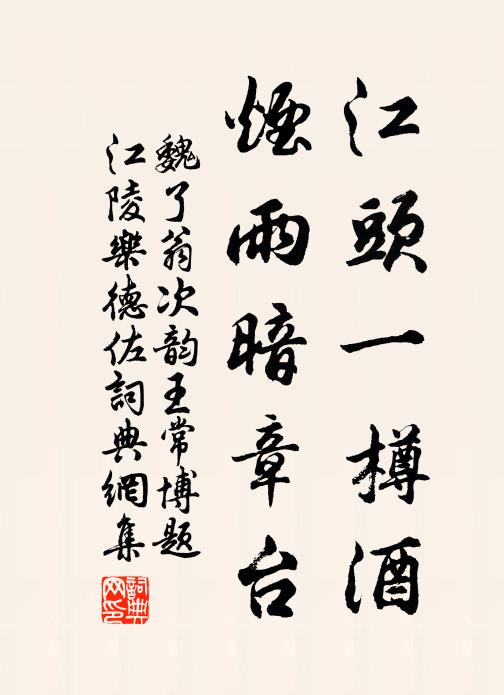 江頭一樽酒
煙雨暗章台
魏了翁次韵王常博题
江陵樂德佐詞典網集
詞典网印